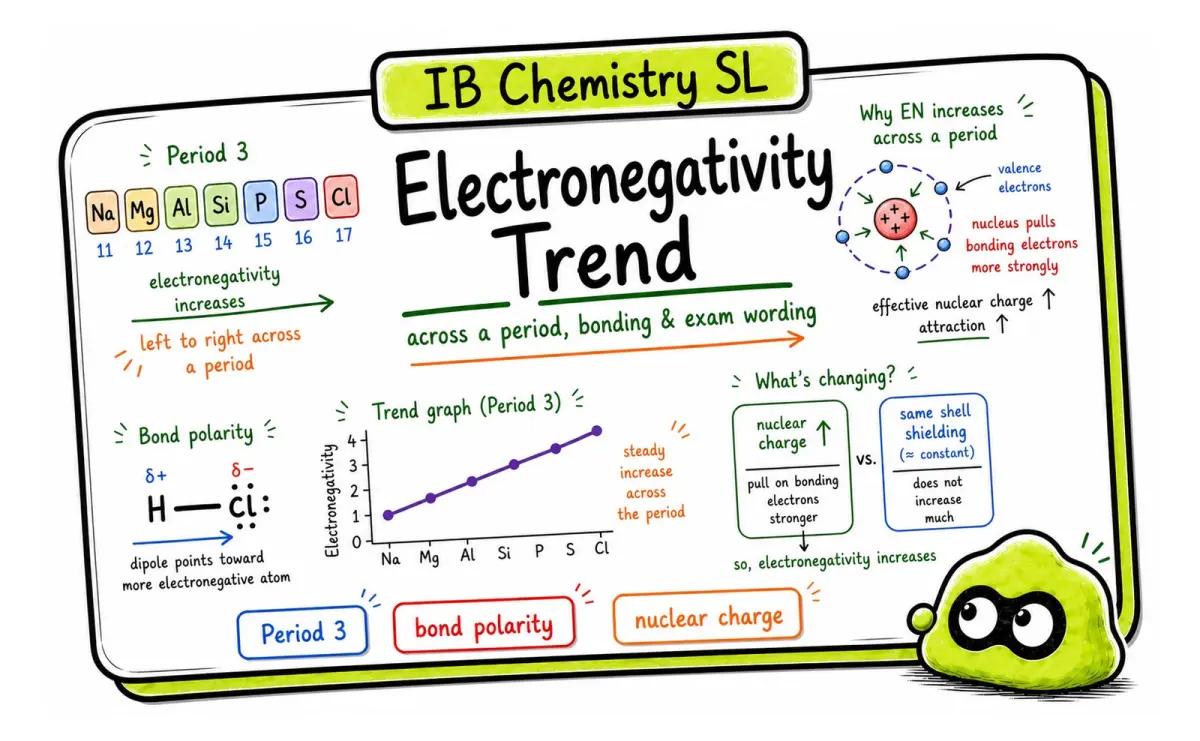 IB Chemistry SL
Electronegativity
Trend
across a period, bonding & exam wording
Period 3
Na Mg Al Si P S Cl
11 12 13 14 15 16 17
electronegativity
increases
left to right across
a period
Why EN increases
across a period
valence
electrons
+ + + + +
nucleus pulls
bonding electrons
more strongly
effective nuclear charge ↑
attraction ↑
Bond polarity
δ+ δ−
H — Cl
dipole points toward
more electronegative atom
Trend graph (Period 3)
Electronegativity
4
3
2
1
0
Na Mg Al Si P S Cl
steady
increase
across
the period
What's changing?
nuclear
charge ↑
pull on bonding
electrons
stronger
vs.
same shell
shielding
(≈ constant)
does not
increase
much
so, electronegativity increases
Period 3
bond polarity
nuclear charge